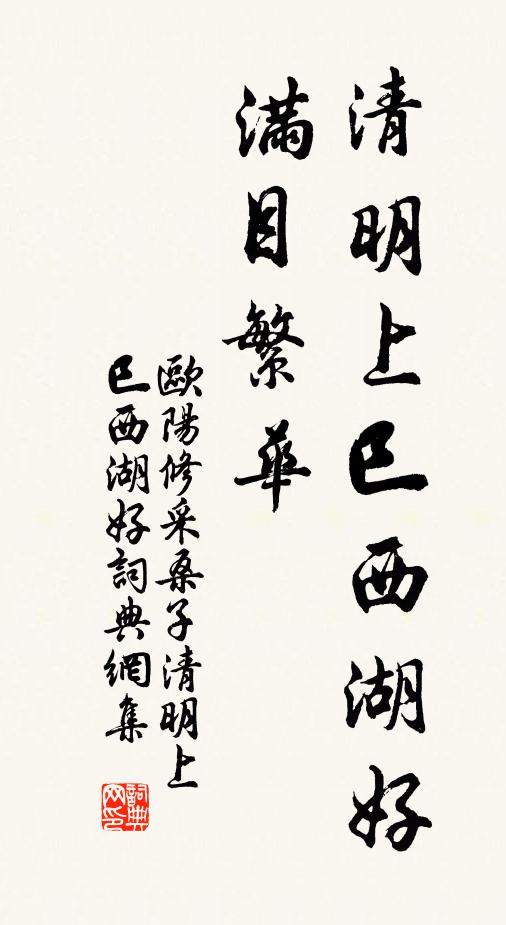 清明上巳西湖好
滿目繁華
歐陽修采桑子清明上
巳西湖好詞典網集
詞典
网印